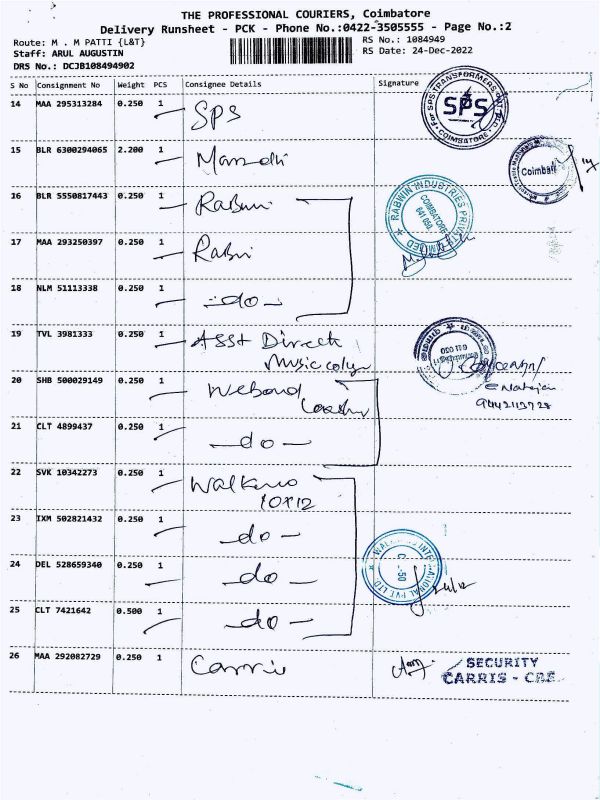 THE PROFESSIONAL COURIERS, Coimbatore
Delivery Runsheet - PCK - Phone No.:0422-3505555 - Page No.:2
Route: M . M PATTI {L&T}
RS No.: 1084949
Staff: ARUL AUGUSTIN
RS Date: 24-Dec-2022
DRS No.: DCJB108494902
S No Consignment No Weight PCS Consignee Details Signature
14 MAA 295313284 0.250 1 SPS
For SPS TRANSFORMERS SPS COIMBATORE
15 BLR 6300294065 2.200 1
Coimbat
16 BLR 5550817443 0.250 1
RABWIN INDUSTRIES PRIVATE LIMITED COIMBATORE 641 050.
17 MAA 293250397 0.250 1
18 NLM 51113338 0.250 1 -do-
19 TVL 3981333 0.250 1 Asst Direct
Music
20 SHB 500029149 0.250 1
21 CLT 4899437 0.250 1 -do-
22 SVK 10342273 0.250 1
23 IXM 502821432 0.250 1 -do-
24 DEL 528659340 0.250 1 -do-
25 CLT 7421642 0.500 1 -do-
26 MAA 292082729 0.250 1
SECURITY
CARRIS - CBE